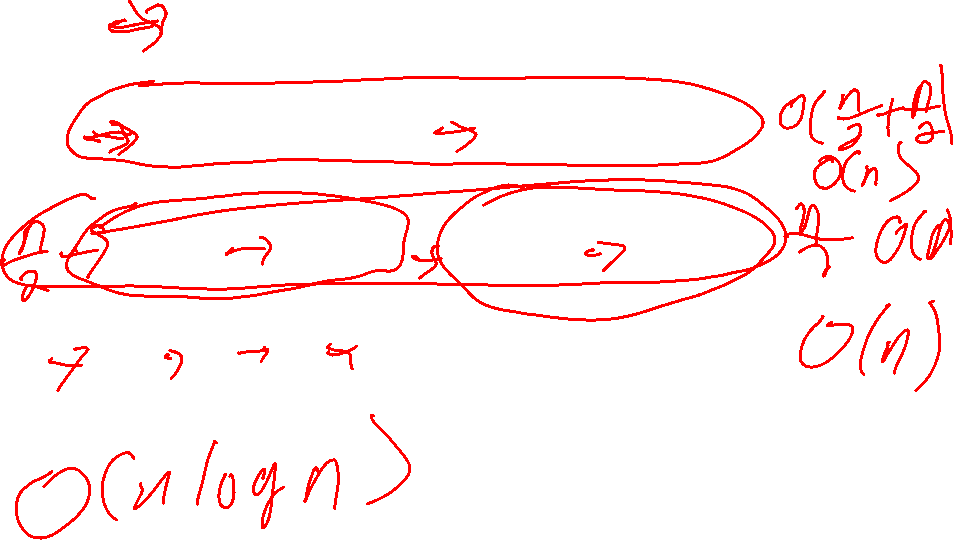 O(n/2 + n/2)
O(n)
n/2 n/2 O(n
O(n)
O(n log n)